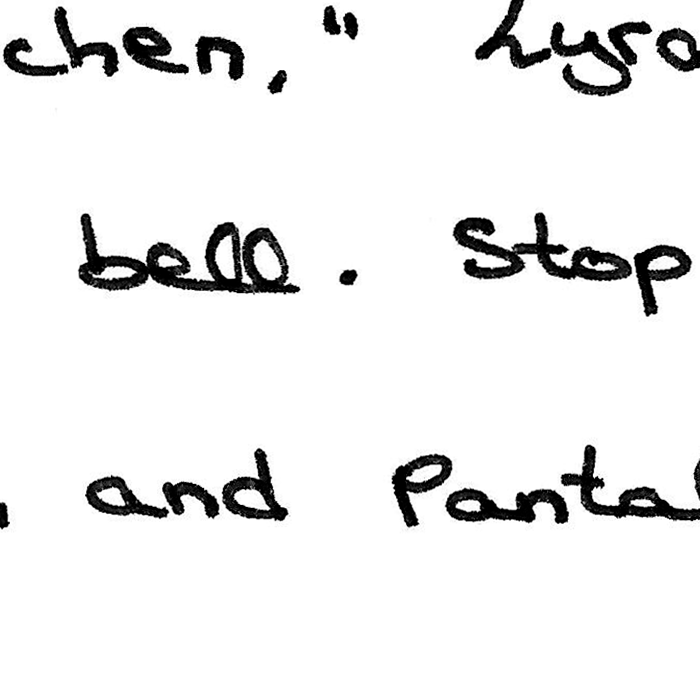 chen," Lyra
bell. Stop
, and Pantal